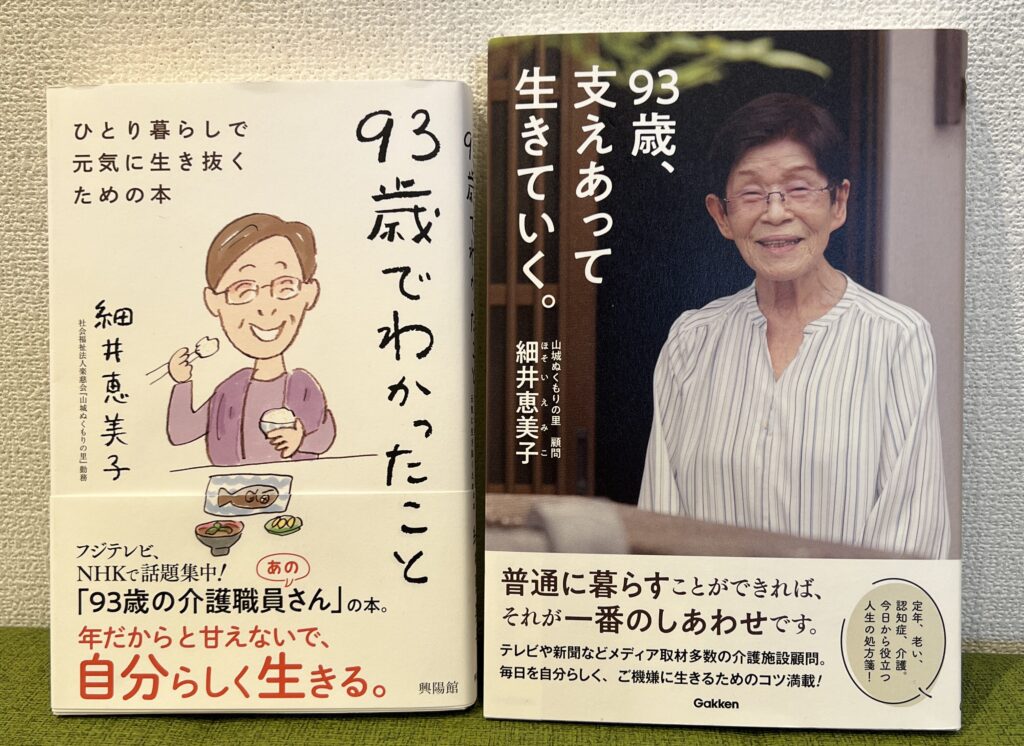 ひとり暮らしで
元気に生き抜く
ための本
93歳でわかったこと
細井恵美子
社会福祉法人楽慈会「山城ぬくもりの里」勤務
フジテレビ、
NHKで話題集中!
あの
「93歳の介護職員さん」の本。
年だからと甘えないで、
自分らしく生きる。
興陽館
93歳、
支えあって
生きていく。
山城ぬくもりの里 顧問
ほそいえみこ
細井恵美子
普通に暮らすことができれば、
それが一番のしあわせです。
テレビや新聞などメディア取材多数の介護施設顧問。
毎日を自分らしく、ご機嫌に生きるためのコツ満載!
定年、老い、
認知症、介護。
今日から役立つ
人生の処方箋!
Gakken